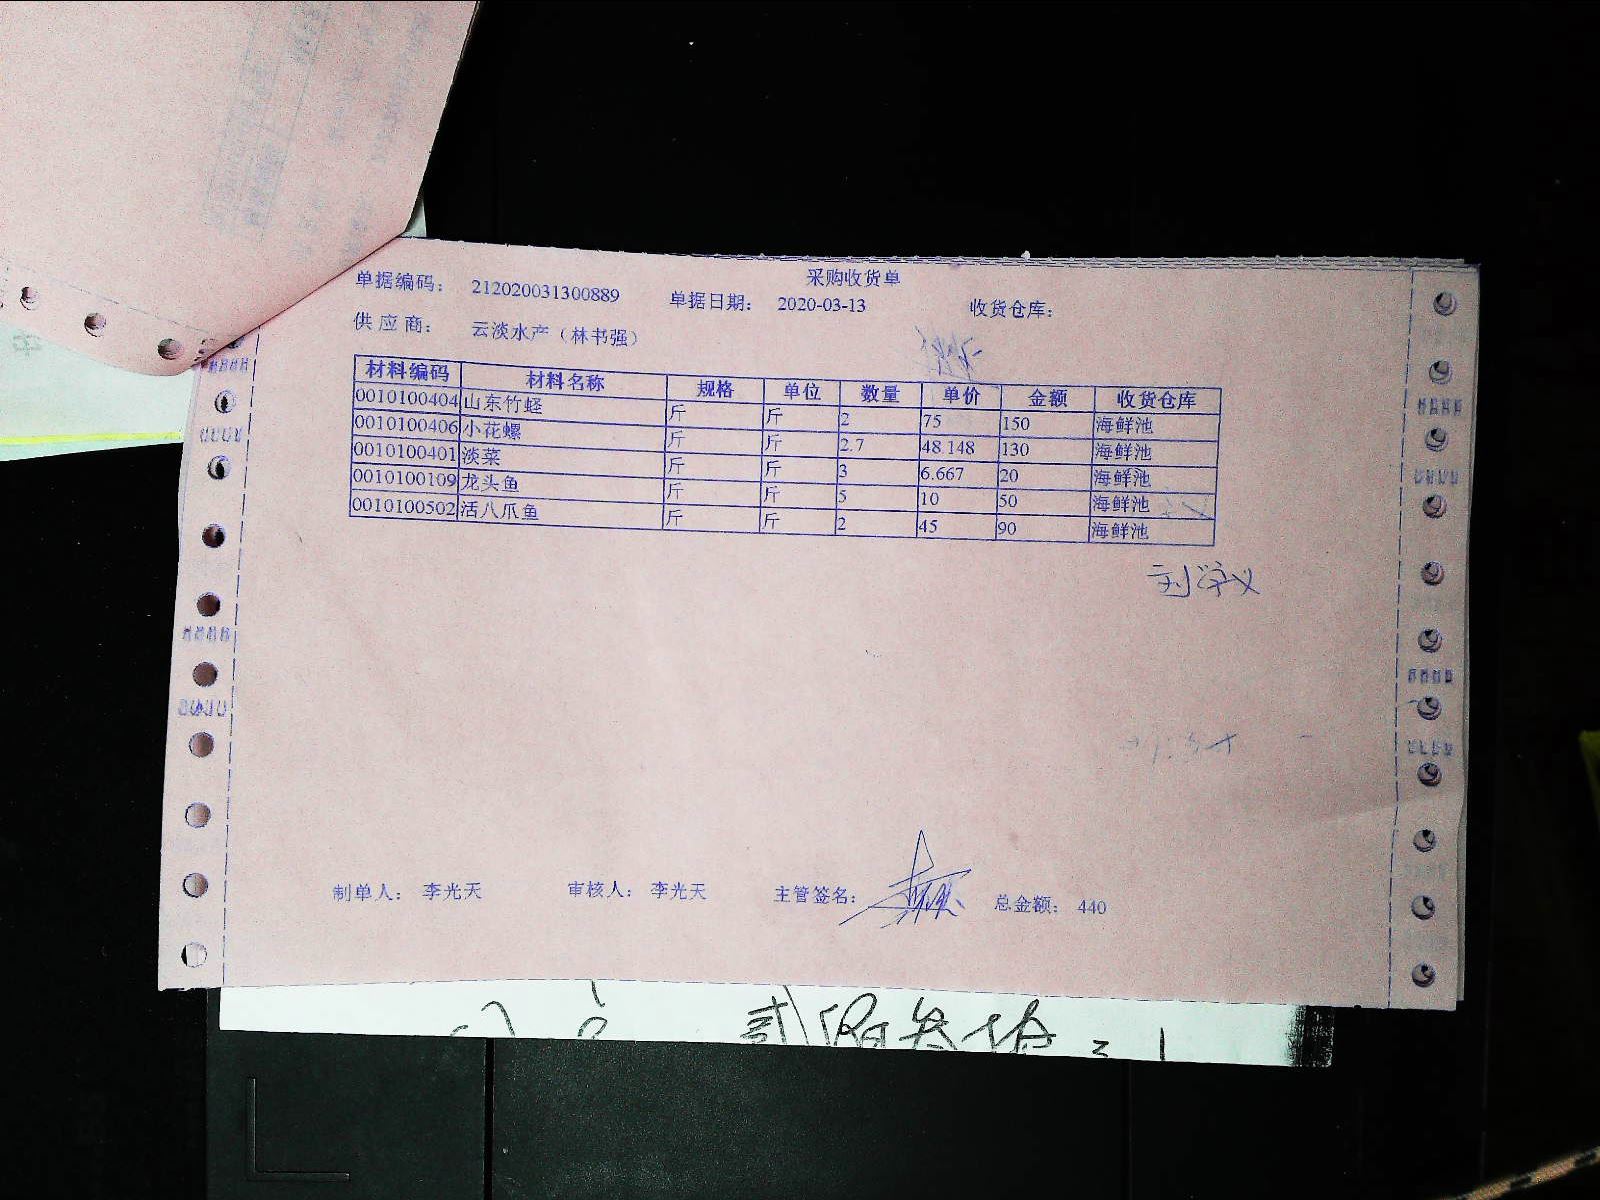 采购收货单
单据编码： 212020031300889 单据日期： 2020-03-13 收货仓库：
供 应 商： 云淡水产（林书强）
材料编码 材料名称 规格 单位 数量 单价 金额 收货仓库
0010100404 山东竹蛏 斤 斤 2 75 150 海鲜池
0010100406 小花螺 斤 斤 2.7 48.148 130 海鲜池
0010100401 淡菜 斤 斤 3 6.667 20 海鲜池
0010100109 龙头鱼 斤 斤 5 10 50 海鲜池
0010100502 活八爪鱼 斤 斤 2 45 90 海鲜池
制单人： 李光天 审核人： 李光天 主管签名： 总金额： 440